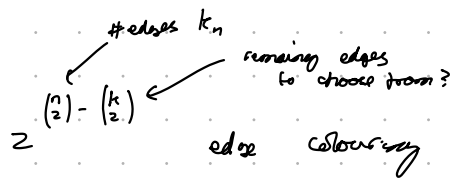 #edges Kn
remaining edges
to choose from?
2^{\binom{n}{2} - \binom{k}{2}}
edge colouring